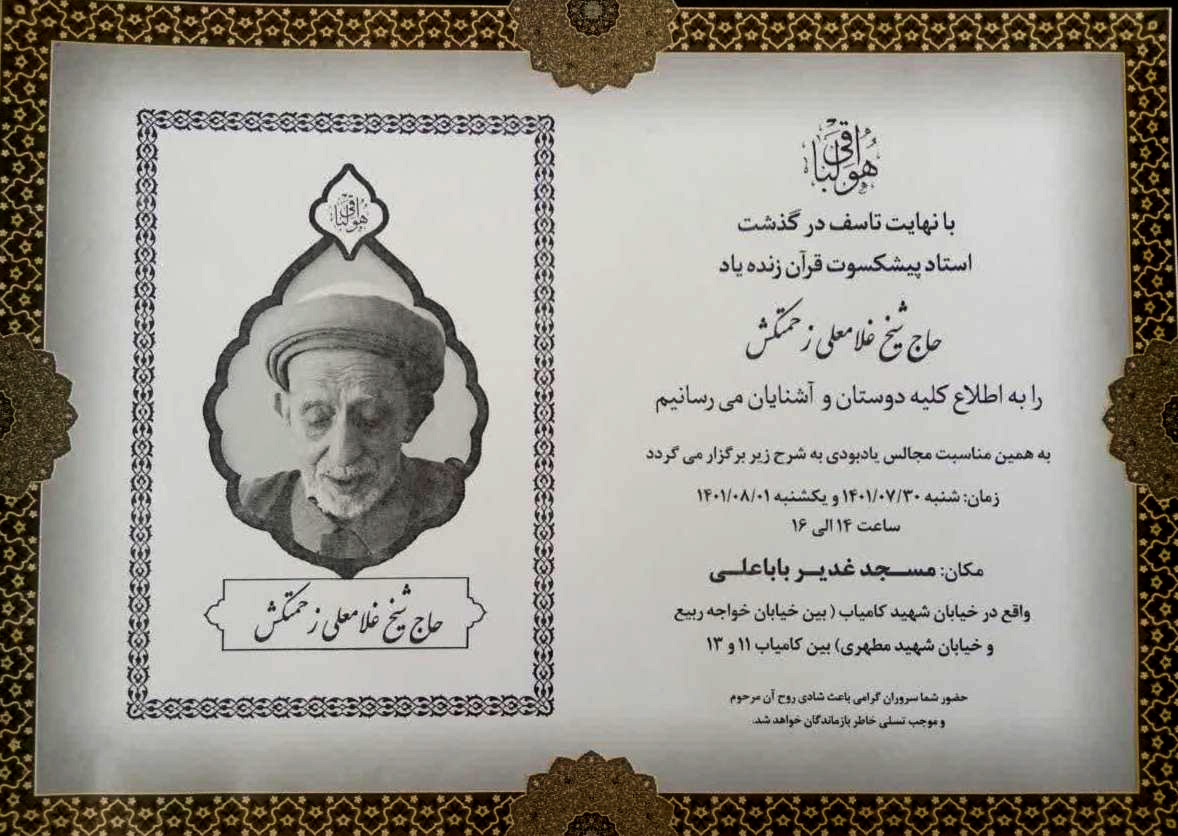 هوالباقی
با نهایت تاسف در گذشت
استاد پیشکسوت قرآن زنده یاد
حاج شیخ غلامعلی زحمتکش
را به اطلاع کلیه دوستان و آشنایان می رسانیم
به همین مناسبت مجالس یادبودی به شرح زیر برگزار می گردد
زمان: شنبه ۱۴۰۱/۰۷/۳۰ و یکشنبه ۱۴۰۱/۰۸/۰۱
ساعت ۱۴ الی ۱۶
مکان: مسجد غدیر باباعلی
واقع در خیابان شهید کامیاب ( بین خیابان خواجه ربیع
و خیابان شهید مطهری) بین کامیاب ۱۱ و ۱۳
حضور شما سروران گرامی باعث شادی روح آن مرحوم
و موجب تسلی خاطر بازماندگان خواهد شد.
هوالباقی
حاج شیخ غلامعلی زحمتکش